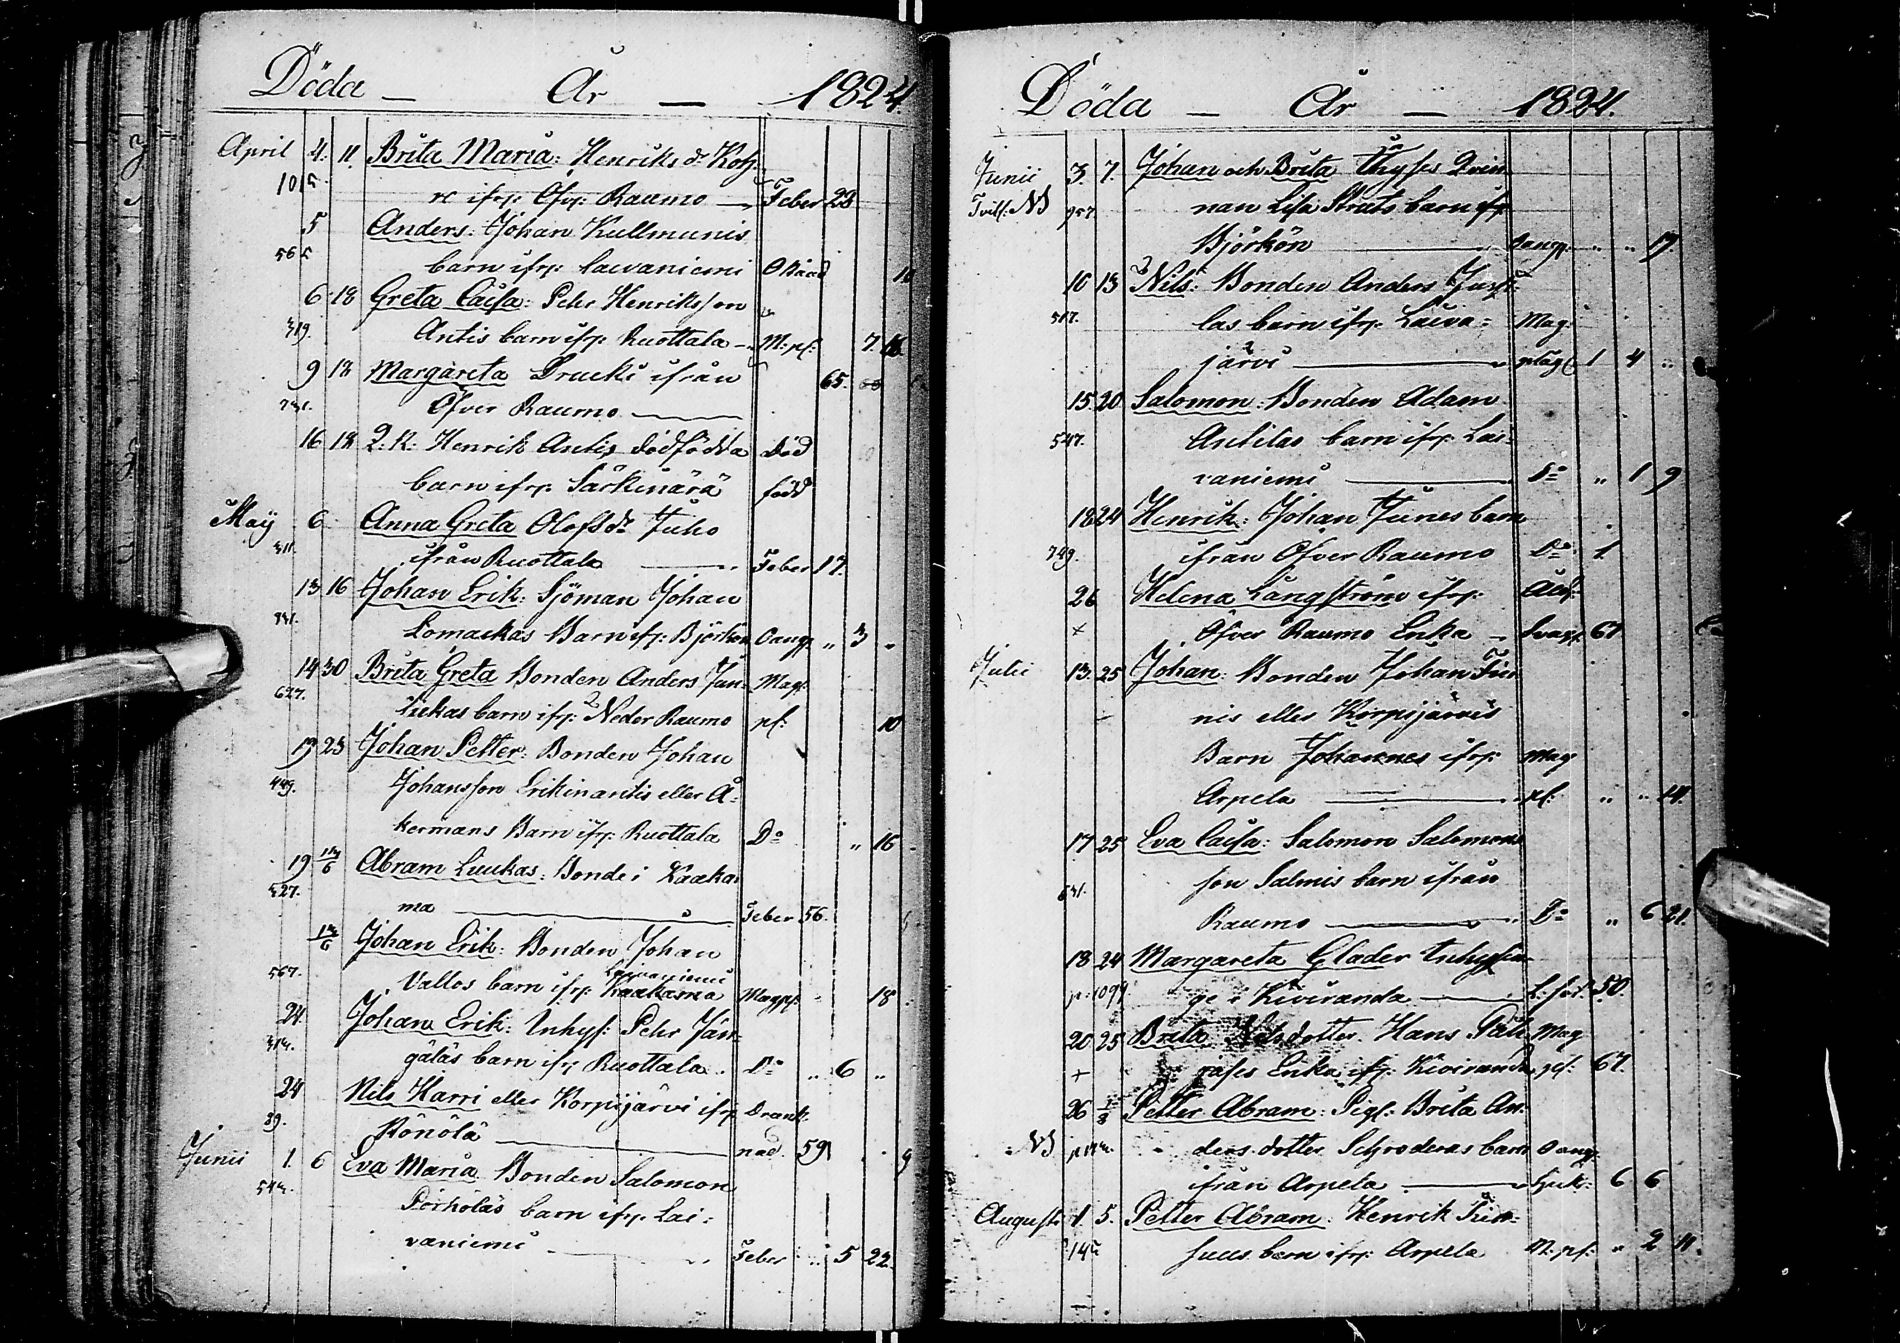 Döda — År — 1824.
April 4. 11. Brita Maria: Henriks dr
re ifrp. Öfv: Raumo — Feber 28
5 Anders: Johan Kullmunis
barn ifrp: Laivaniemi Okänd
6 18 Greta Caisa: Pehr Henriksson
319. Antis barn ifrp. Ruottala — M: pf: 7. 16
9 18 Margareta Drucki ifrån 65.
731. Öfver Raumo —
16 18 2. K: Henrik Antis dödfödda Död
barn ifrp. Särkinärä född
Maÿ 6 Anna Greta Olofsdr Juho
311. ifrån Ruottala — Feber 17.
13 16 Johan Erik: Sjöman Johan
731. Lomackas Barn ifrp: Björkön Oangp „ 3 „
14 30 Brita Greta Bonden Anders Jun- Mag:
627. tukas barn ifrp: Neder Raumo pf: 10
19 23 Johan Petter: Bonden Johan
449. Johansson Erikinantis eller Å-
kermans Barn ifrp. Ruottala Do „ 16
19 Abram Luukas: Bonde i Kaaka-
527. ma — Feber 56.
Johan Erik: Bonden Johan
Laivaniemi
567. Vallos barn ifrp. Kaakama Magpf. 18
24 Johan Erik: Inhys: Pehr Jän-
314. gäläs barn ifrp Ruottala. Do „ 6 „
24 Nils Harri eller Korpijärvi ifrp Drunk-
39. Könölä — nad 59
Junii 1. 6 Eva Maria Bonden Salomon
514. Pörhöläs barn ifrp. Lai-
vaniemi — Feber „ 5 22.
Döda — År — 1824.
Junii 3. 7. Johan och Brita Inhyses Qvin-
Tvill: 957. nan Lisa Struts barn ifrp
Björkön — Oangp. „ „ 17
10 13 Nils: Bonden Anders
517. las barn ifrp. Laiva- Mag:
järvi — plåg 1 4 „
15 20 Salomon: Bonden Adam
547. Antilas barn ifrp. Lai-
vaniemi — Do „ 1 9
18 24 Henrik: Johan Junes barn
749. ifrån Öfver Raumo Do 1
26 Helena Långström ifrp. Åld:
+ Öfver Raumo Enka — svagh 67
Julii 13. 25 Johan: Bonden Johan
nis eller Korpijärvis
Barn Johannes ifrp. Mag
Arpela — pf: „ „ 14.
17 25 Eva Caisa: Salomon Salomons-
631. son Salmis barn ifrån
Raumo — Do „ 6 21.
18 24 Margareta Glader Inhyses
p. 1099 ge i Kiviranda — 50
20 25 Brita Nilsdotter. Hans Mag
+ Enka ifrp. Kiviranda pf: 67.
26 Petter Abram: Pigl: Brita An-
ders dotter Schroderas barn Oang
ifrån Arpela — sjuk: 6 6
Augusti 1 5. Petter Abram: Henrik
barn ifrp: Arpela M. pf: „ 2 11.